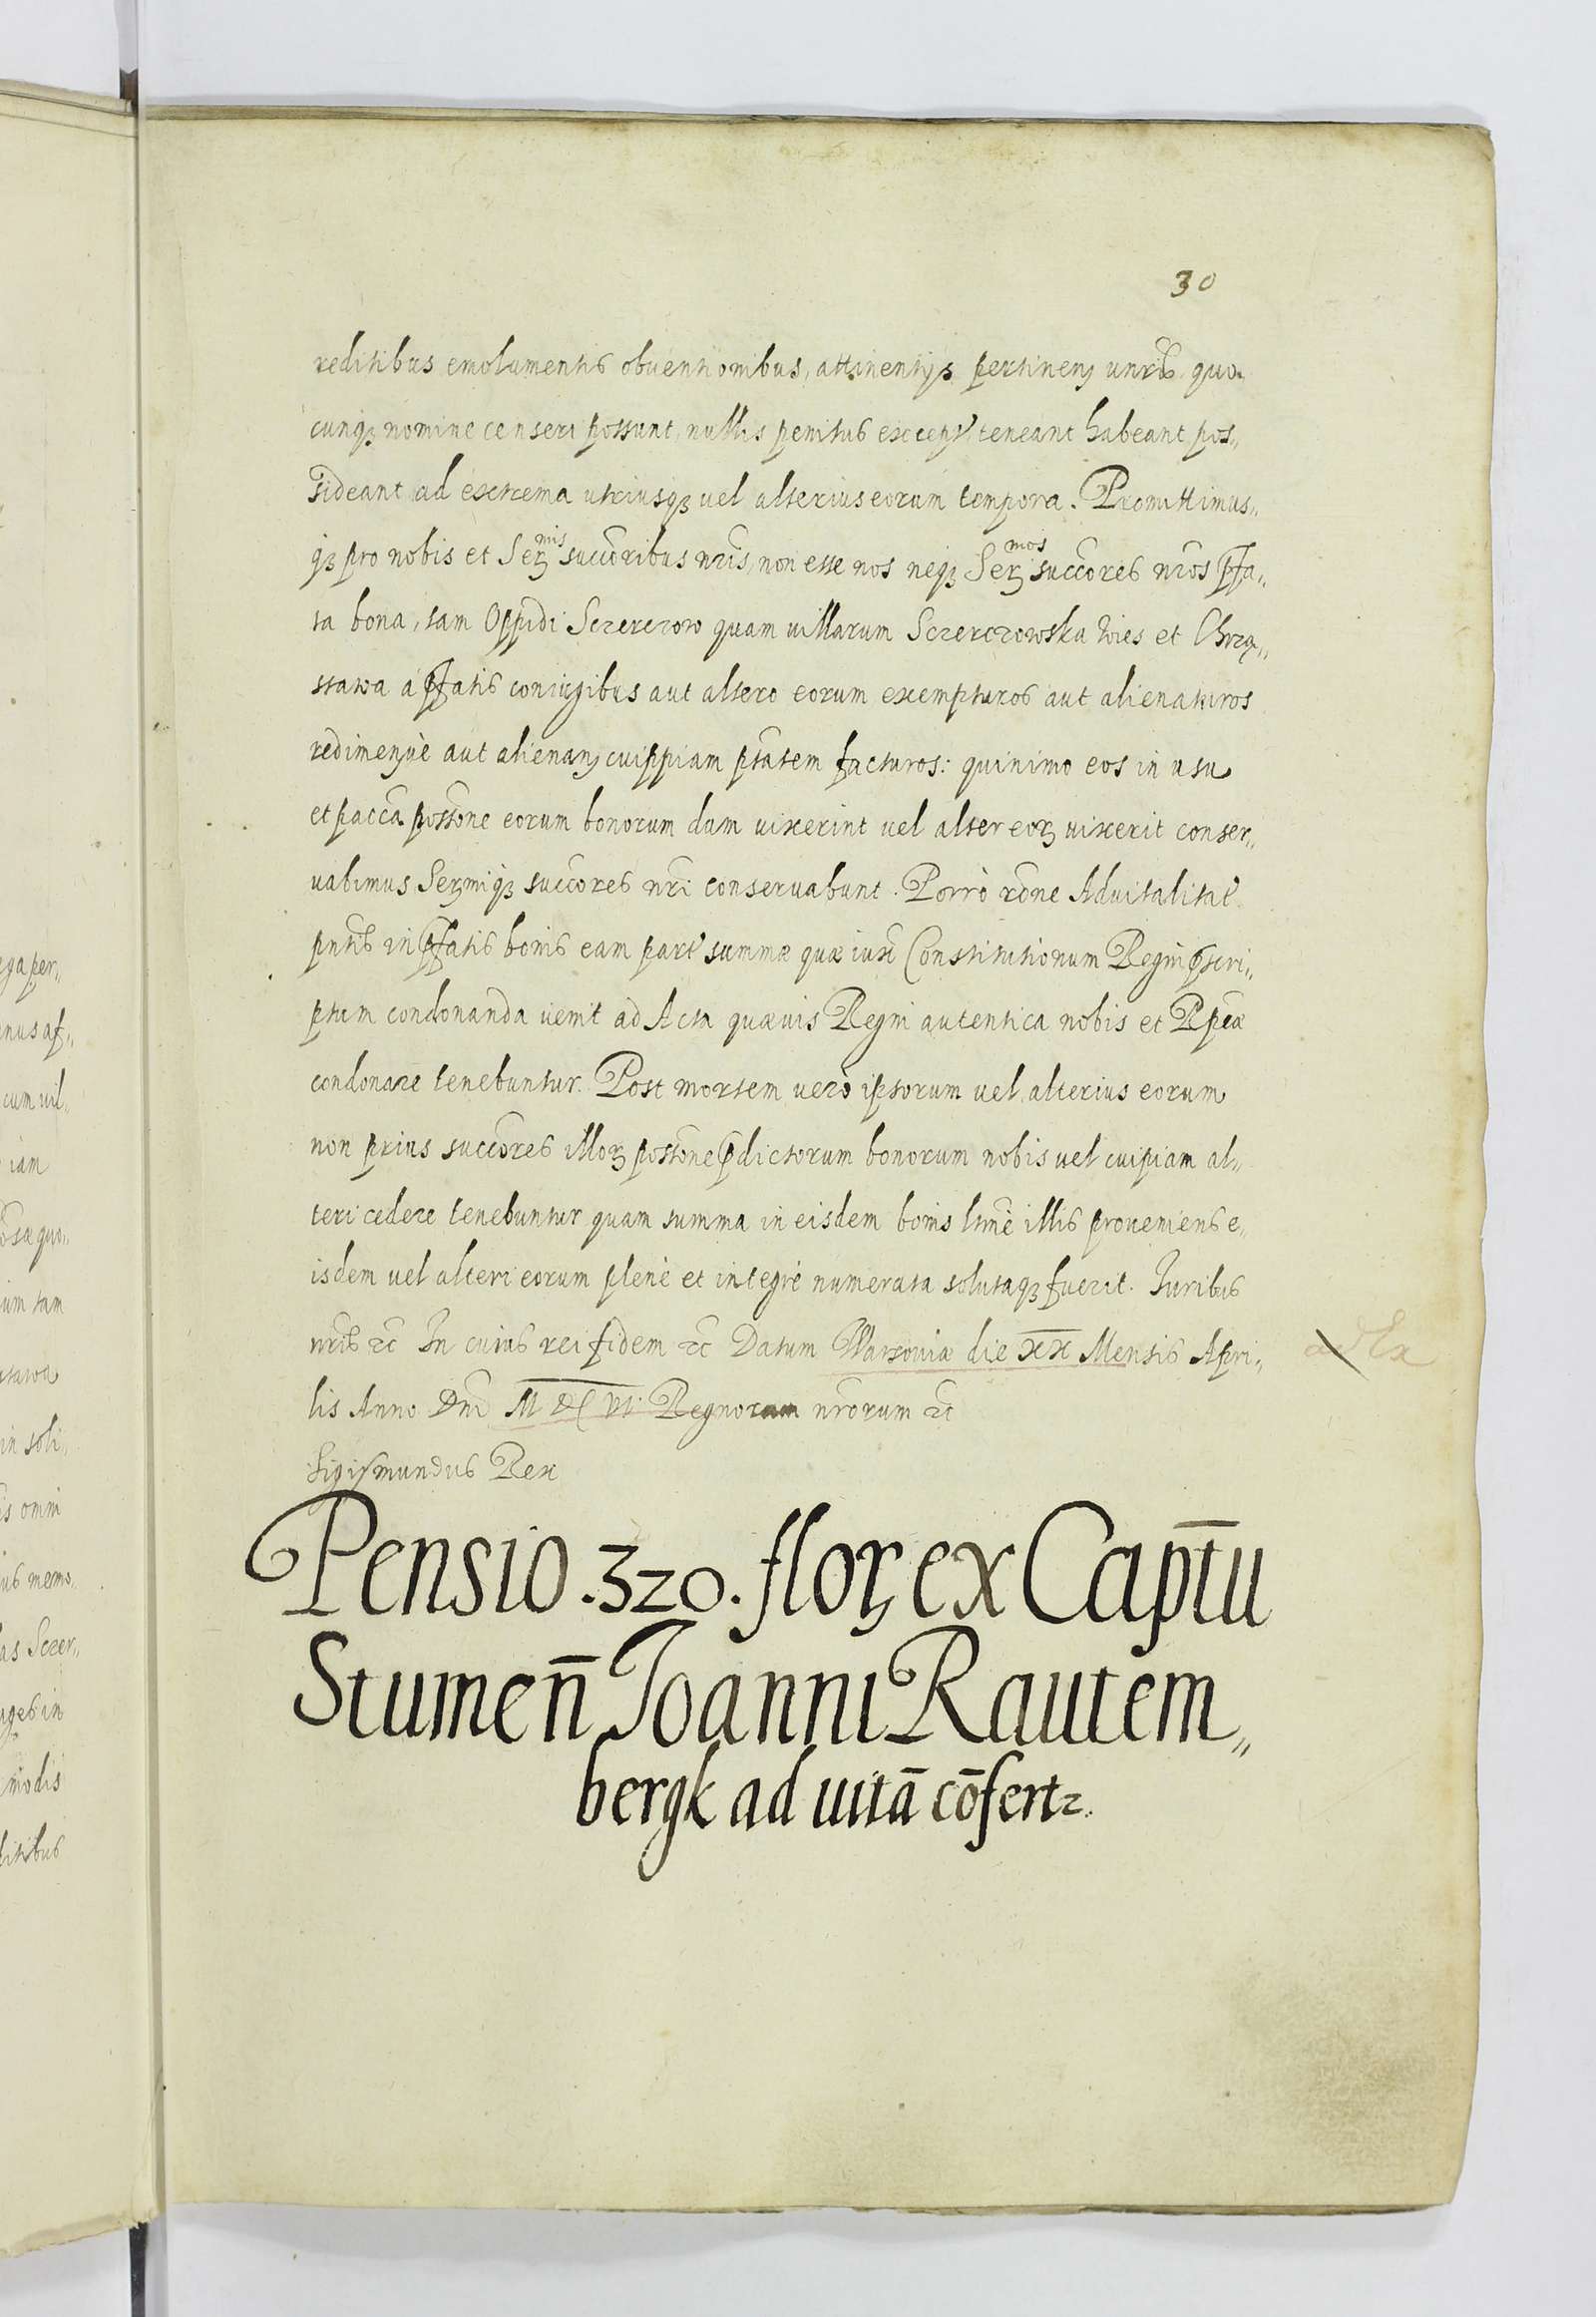 30
reditibus emolumentis obuentionibus, attinentijs pertinenʒ unrīs quo„
cunqʒ nomine censeri possunt, nullis penitus except' teneant habeant pos„
sideant ad extrema utriusqʒ uel alterius eorum tempora. Promittimus„
qʒ pro nobis et Serʒmis succ̄oribus nr̄is, non esse nos neqʒ Serʒmos succ̄ores nr̄os p̄fa„
ta bona, tam Oppidi Sczerczow quam uillarum Sczerczowska Wies et Chrzą„
stawa á p̄fatis coniugibus aut altero eorum exempturos aut alienaturos
redimenʒuè aut alienanʒ cuippiam pt̄atem facturos: quinimo eos in usu
et pacc̄a poss̄one eorum bonorum dum uixerint uel alter eorʒ uixerit conser„
uabimus Serʒmiqʒ succ̄ores nr̄i conseruabunt. Porrò rōne Aduitalitat'
pn̄tis in p̄fatis bonis eam part' summæ quæ iuxt̄ Constitutionum Regni p̄scri„
ptum condonanda uenit ad Acta quæuis Regni autentica nobis et Rp̄cæ
condonare tenebuntur. Post mortem uerò ipsorum uel alterius eorum
non prius succ̄ores illorʒ poss̄one p̄dictorum bonorum nobis uel cuipiam al„
teri cedere tenebuntur quam summa in eisdem bonis ltm̄è illis proueniens e„
isdem uel alteri eorum plenè et integrè numerata solutaqʒ fuerit. Iuribus
nr̄is ꝛc̄ In cuius rei fidem ꝛc̄ Datum Warsouiæ die XX Mensis Apri„
lis Anno Dn̄i M DC VI. Regnorum nr̄orum ꝛc̄
Sigismundus Rex
Pensio .320. florʒ ex Capt̄u
Stumen̄ Ioanni Rautem„
bergk ad uitā cōfertꝛ.